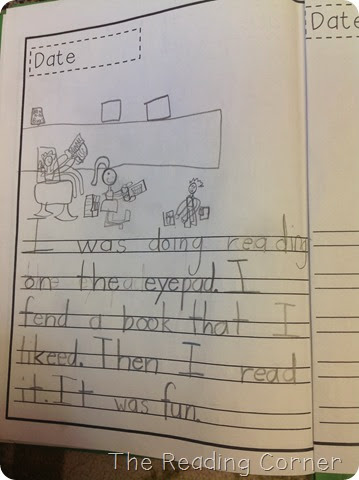 Date
Date
I was doing reading
on the eyepad. I
fend a book that I
likeed. Then I read
it. It was fun.
The Reading Corner